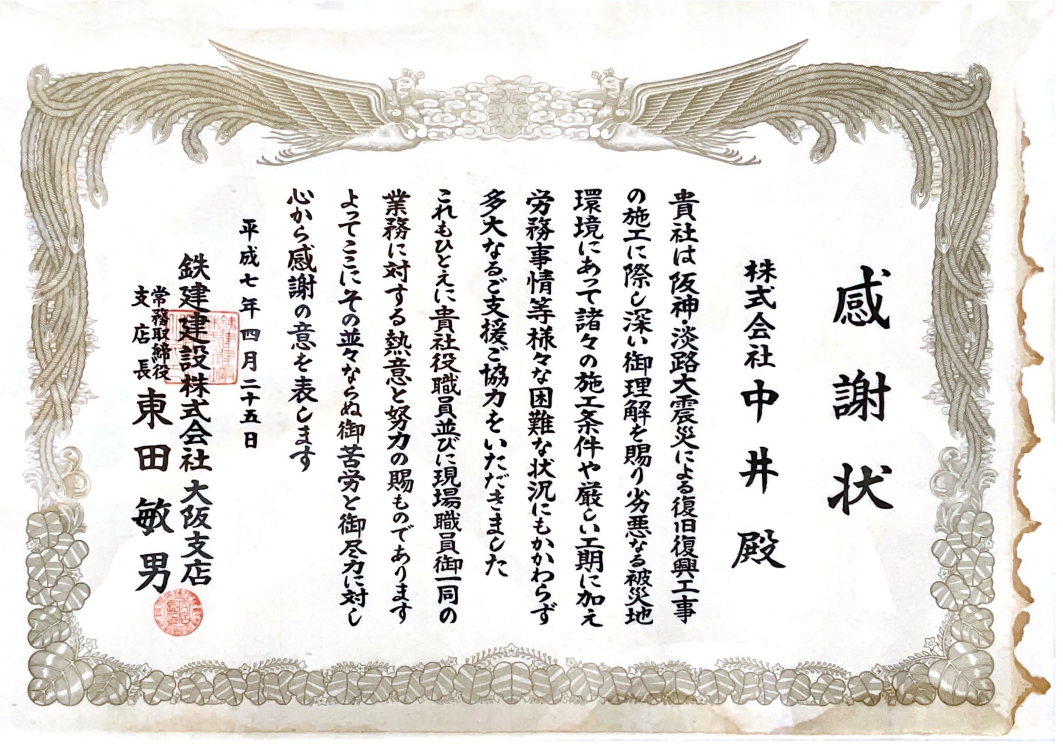 感謝状
株式会社 中井 殿
貴社は阪神淡路大震災による復旧復興工事
の施工に際し深い御理解を賜り劣悪なる被災地
環境にあって諸々の施工条件や厳しい工期に加え
労務事情等様々な困難な状況にもかかわらず
多大なるご支援ご協力をいただきました
これもひとえに貴社役職員並びに現場職員御一同の
業務に対する熱意と努力の賜ものであります
よってここにその並々ならぬ御苦労と御尽力に対し
心から感謝の意を表します
平成七年四月二十五日
鉄建建設株式会社 大阪支店
常務取締役
支店長 東田敏男